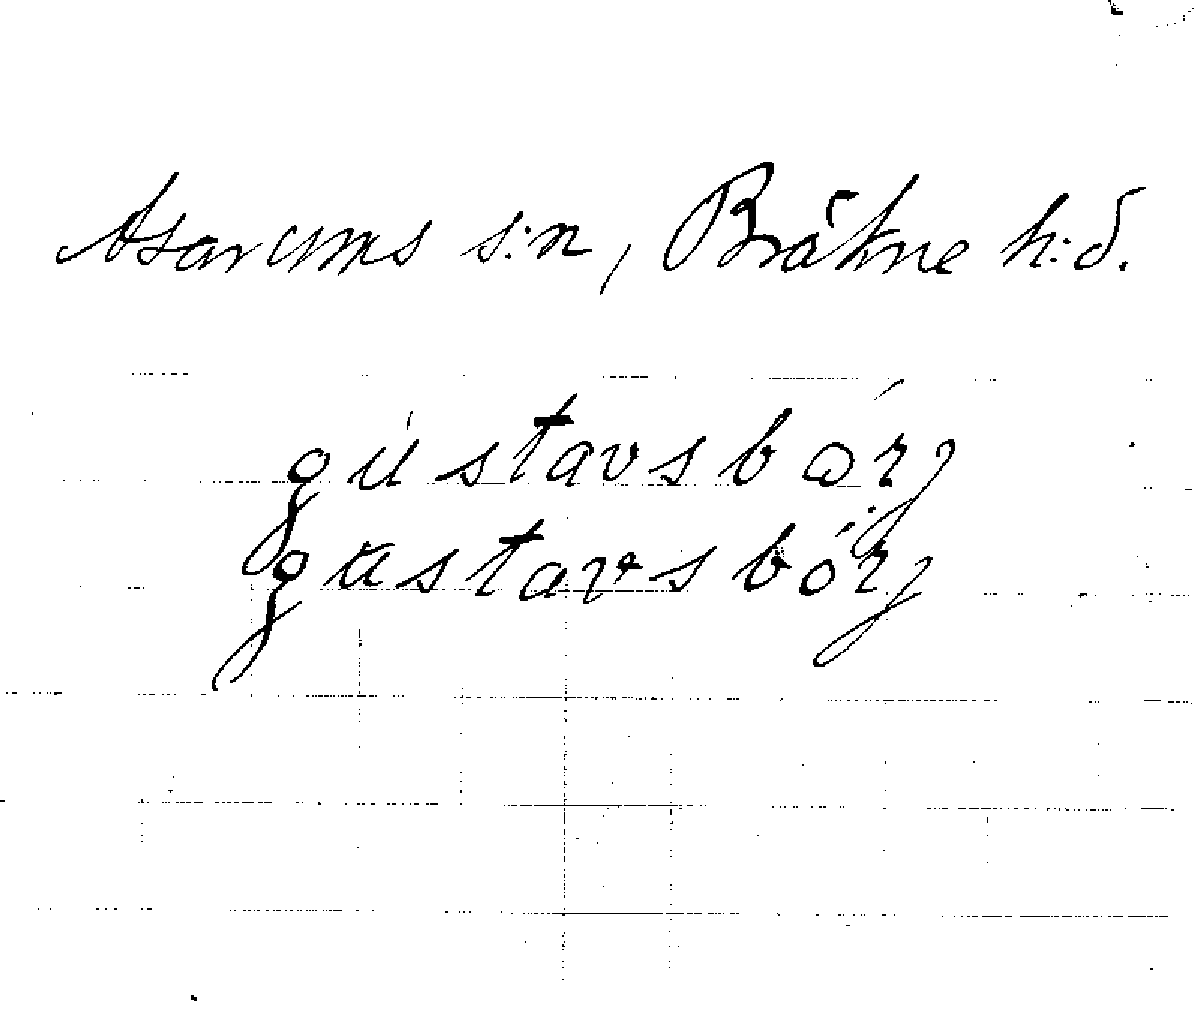 Asarums s:n, Bräkne h:d.
gústavsbɔ́rj
gustavsbórj